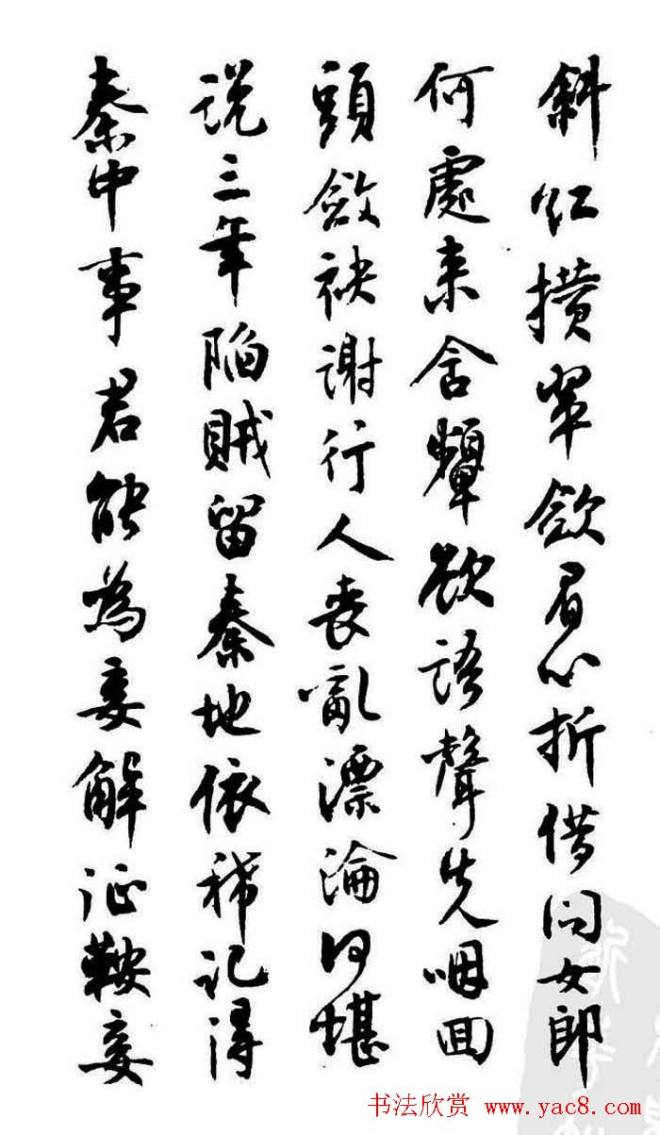 斜红攅翠敛眉心折借问女郎
何處来含颦欲语聲先咽回
頭斂袂谢行人丧亂漂淪何堪
说三年陷贼留秦地依稀记得
秦中事君能为妾解征鞍妾
书法欣赏 www.yac8.com